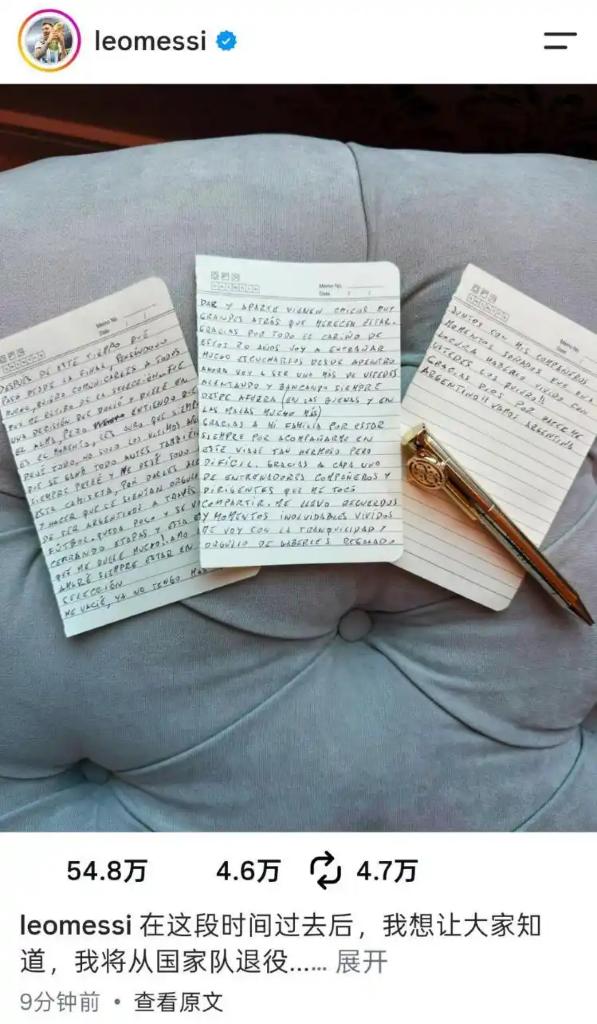 leomessi
Memo No.
Date / /
DESPUES DE ESTE TIEMPO QUE
PASO DESDE LA FINAL, PENSANDOLO
MUCHO, QUIERO COMUNICARLES A TODOS
QUE ME RETIRO DE LA SELECCIÓN. FUE
UNA DECISION QUE DOLIO Y DUELE EN
EL ALMA, PERO ENTIENDO QUE
ES EL MOMENTO. LES JURO QUE SIEMPRE
DEJÉ TODO, NO SOLO LOS ULTIMOS AÑOS
QUE SE GANÓ TODO, ANTES TAMBIEN
SIEMPRE PELEÉ Y ME DEJÉ TODO
ESTA CAMISETA, POR DARLES
Y HACER QUE SE SIENTAN ORGULLOSOS
DE SER ARGENTINOS A TRAVÉS
FUTBOL. QUEDA POCO Y SE
CERRANDO ETAPAS Y ESTA
QUE ME DUELE MUCHO! AMO
AMARÉ SIEMPRE ESTAR EN
SELECCIÓN
ME VACIÉ, YA NO TENGO MAS
Memo No.
Date / /
DAR Y APARTE VIENEN CHICOS MUY
GRANDES ATRÁS QUE MERECEN ESTAR.
GRACIAS POR TODO EL CARIÑO DE
ESTOS 20 AÑOS, VOY A EXTRAÑAR
MUCHO ESCUCHARLOS DESDE ADENTRO
AHORA VOY A SER UNO MAS DE USTEDES
ALENTANDO Y BANCANDO SIEMPRE
DESDE AFUERA (EN LAS BUENAS Y EN
LAS MALAS MUCHO MÁS)
GRACIAS A MI FAMILIA POR ESTAR
SIEMPRE POR ACOMPAÑARME EN
ESTE VIAJE TAN HERMOSO PERO
DIFÍCIL. GRACIAS A CADA UNO
DE ENTRENADORES COMPAÑEROS Y
DIRIGENTES QUE ME TOCÓ
COMPARTIR. ME LLEVO RECUERDOS
Y MOMENTOS INOLVIDABLES VIVIDOS
ME VOY CON LA TRANQUILIDAD Y
ORGULLO DE HABERLES REGALADO
Memo No.
Date
JUNTOS CON MIS COMPAÑEROS
MOMENTOS SOÑADOS QUE
HABERLO VIVIDO CON
USTEDES LOS QUIERO!!
GRACIAS DIOS POR HACERME
ARGENTINO!! VAMOS ARGENTINA
54.8万 4.6万 4.7万
leomessi 在这段时间过去后，我想让大家知
道，我将从国家队退役…… 展开
9分钟前 • 查看原文